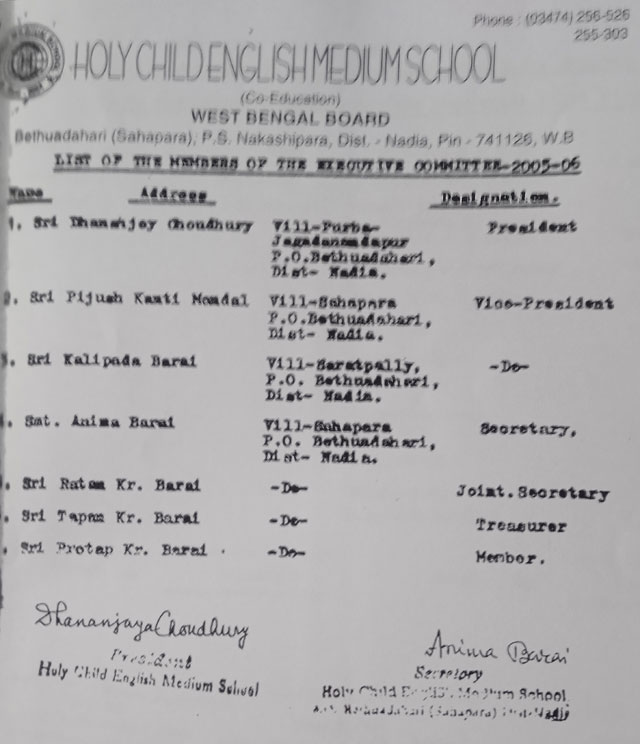 Phone : (03474) 256-526
255-303
HOLY CHILD ENGLISH MEDIUM SCHOOL
(Co-Education)
WEST BENGAL BOARD
Bethuadahari (Sahapara), P.S. Nakashipara, Dist. - Nadia, Pin - 741126, W.B
LIST OF THE MEMBERS OF THE EXECUTIVE COMMITTEE-2005-06
Name Address Designation.
1. Sri Dhananjoy Choudhury Vill-Purba- President
Jagadanandapur
P.O.Bethuadahari,
Dist- Nadia.
2. Sri Pijush Kanti Mondal Vill-Sahapara Vice-President
P.O.Bethuadahari,
Dist- Nadia.
3. Sri Kalipada Barai Vill-Saratpally, -Do-
P.O. Bethuadahari,
Dist- Nadia.
4. Smt. Anima Barai Vill-Sahapara Secretary,
P.O. Bethuadahari,
Dist- Nadia.
. Sri Ratan Kr. Barai -Do- Joint.Secretary
. Sri Tapan Kr. Barai -Do- Treasurer
. Sri Protap Kr. Barai -Do- Member.
Dhananjaya Choudhury
President
Holy Child English Medium School
Anima Barai
Secretary
Holy Child English Medium School
Bethuadahari (Sahapara) Dist-Nadia